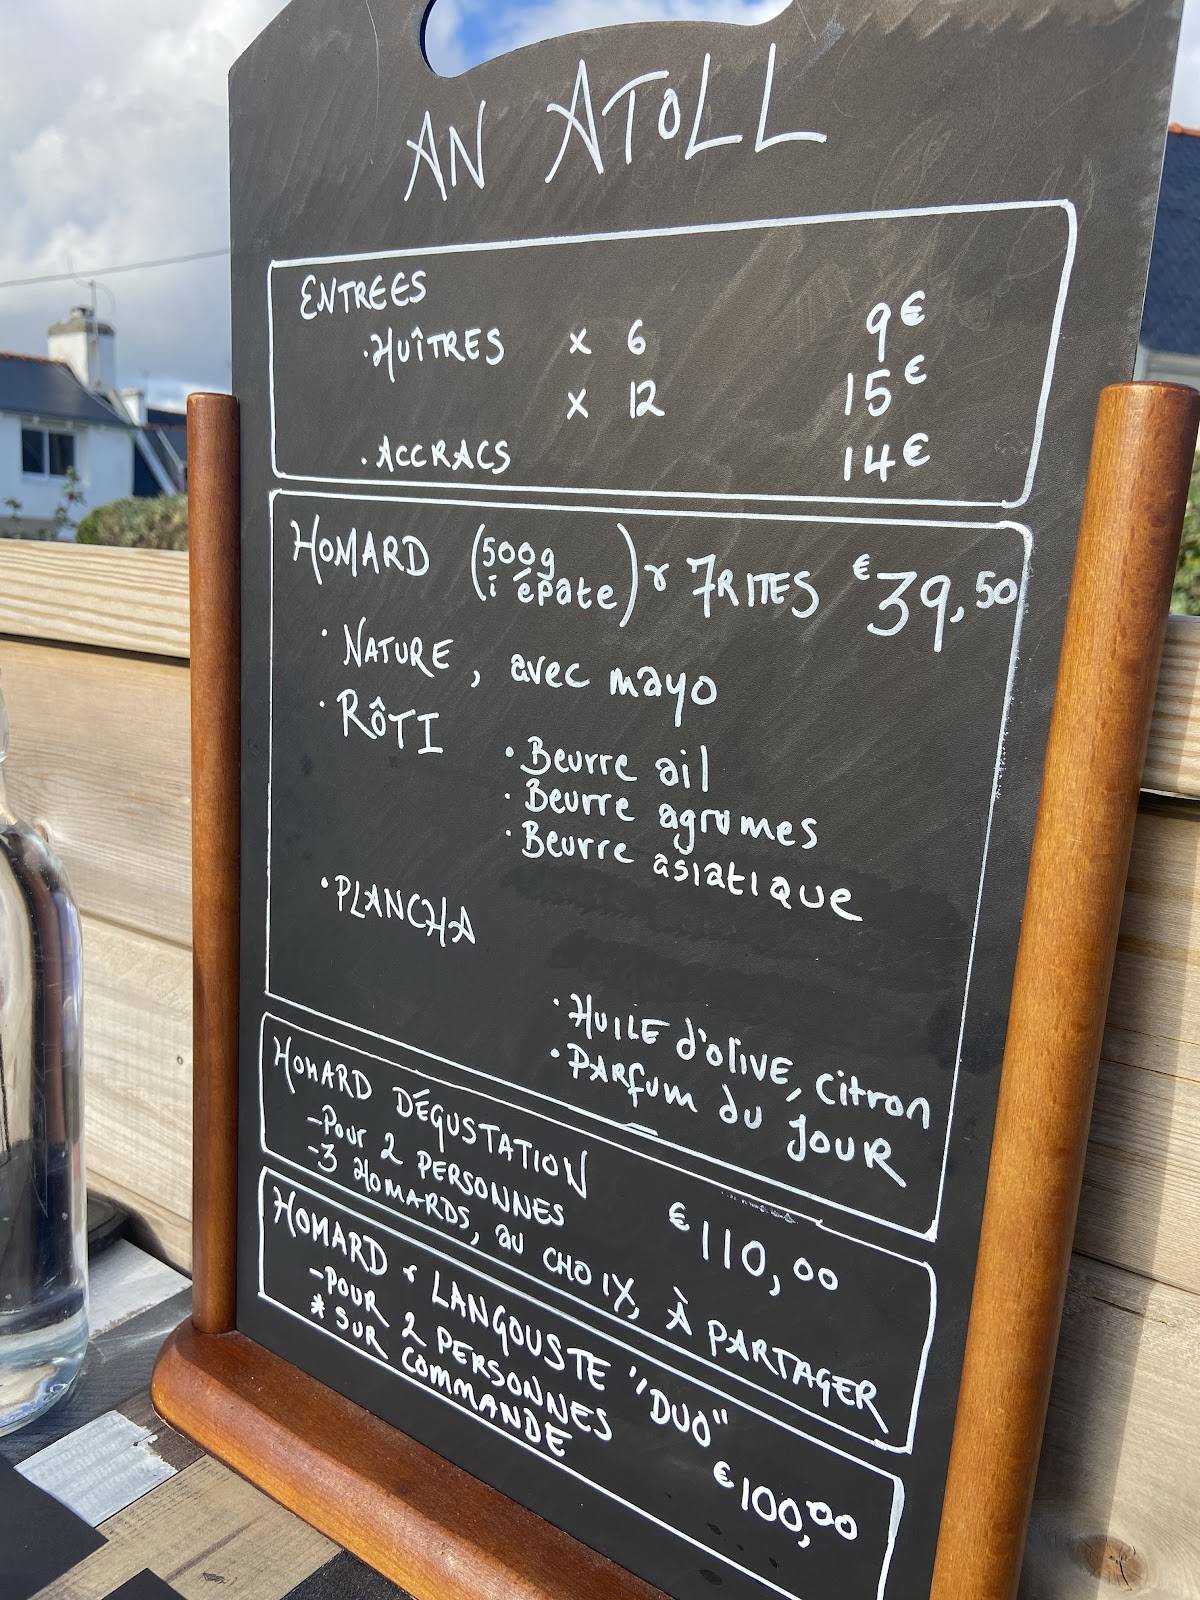 AN ATOLL
ENTREES
.HUÎTRES x 6 9€
x 12 15€
.ACCRACS 14€
HOMARD (500g i épate) & FRITES €39,50
· NATURE, avec mayo
· RÔTI
· Beurre ail
· Beurre agrumes
· Beurre asiatique
· PLANCHA
· HUILE d'olive, citron
· PARfum du JOUR
HOMARD DÉGUSTATION
-Pour 2 PERSONNES €110,00
-3 HOMARDS, au CHOIX, À PARTAGER
HOMARD & LANGOUSTE "DUO"
-POUR 2 PERSONNES €100,00
* SUR COMMANDE